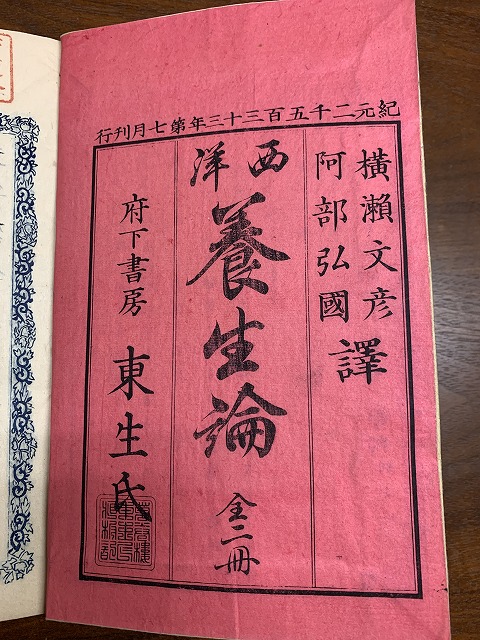 紀元二千五百三十三年第七月刊行
橫瀨文彦
阿部弘國
譯
西洋
養生論
全二冊
府下書房
東生氏